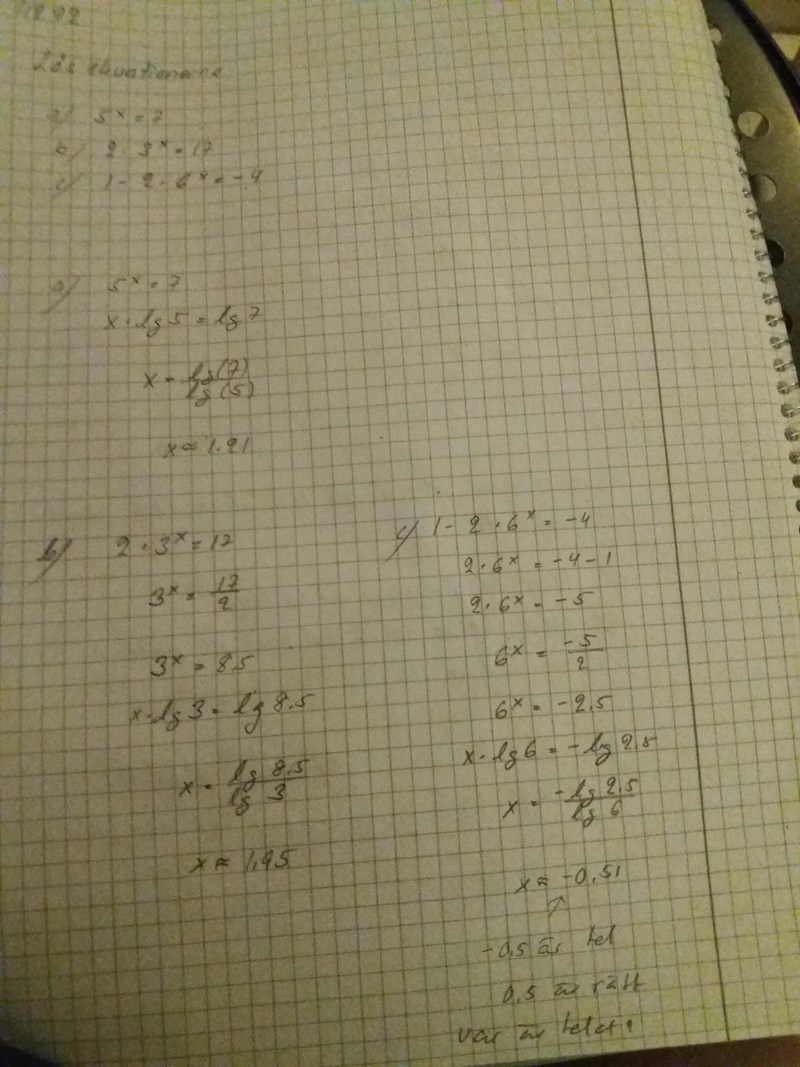 Lös ekvationerna
a) 5ˣ = 7
b) 2 · 3ˣ = 17
c) 1 - 2 · 6ˣ = -4
a) 5ˣ = 7
x · lg 5 = lg 7
x = lg(7)/lg(5)
x ≈ 1.21
b) 2 · 3ˣ = 17
3ˣ = 17/2
3ˣ = 8.5
x · lg 3 = lg 8.5
x = lg 8.5/lg 3
x ≈ 1.95
c) 1 - 2 · 6ˣ = -4
2 · 6ˣ = -4 - 1
2 · 6ˣ = -5
6ˣ = -5/2
6ˣ = -2.5
x · lg 6 = -lg 2.5
x = -lg 2.5/lg 6
x ≈ -0.51
↗
-0.5 är fel
0.5 är rätt
var är felet?